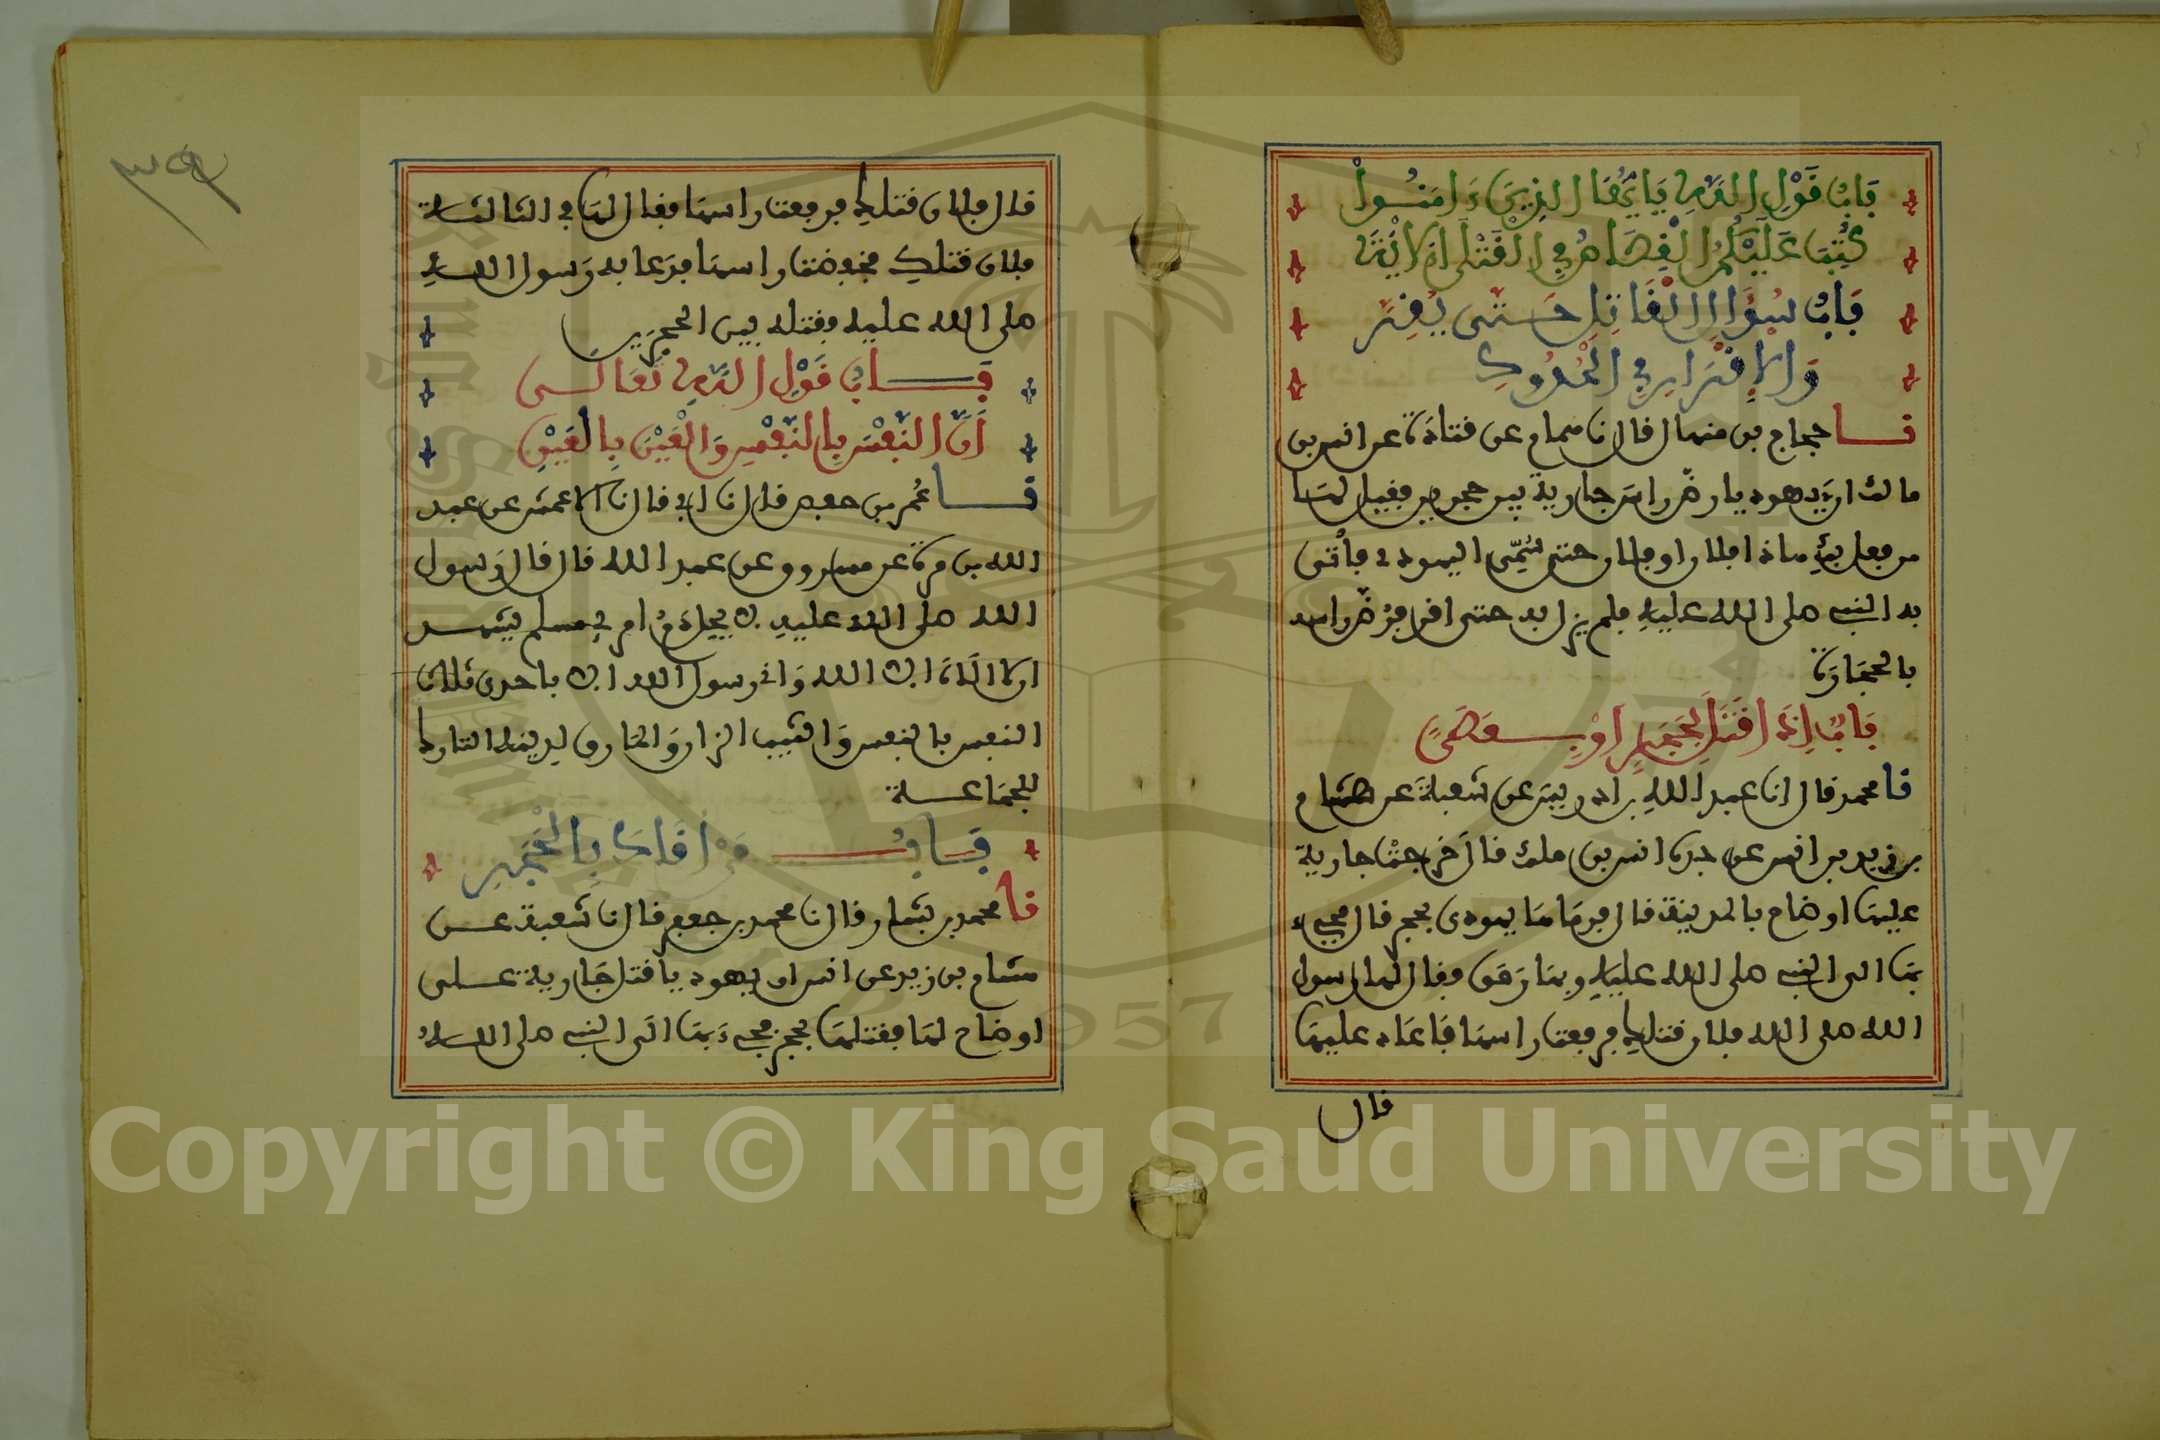 باب قول الله يا أيها الذين ءامنوا
كتب عليكم القصاص في القتلى الآية
باب سؤال القاتل حتى يقر
والإقرار في الحدود
نا حجاج بن منهال قال نا همام عن قتادة عن انس بن
مالك ان يهوديا رض راس جارية بين حجرين فقيل لها
من فعل بك هاذا افلان او فلان حتى سمي اليهودي فأتى
به النبي صلى الله عليه فلم يزل به حتى اقر فرض راسه
بالحجارة
باب إذا قتل بحجر أو بعصى
نا محمد قال انا عبد الله بن ادريس عن شعبة عن هشام
بن زيد بن انس عن جده انس بن ملك قال خرجت جارية
عليها اوضاح بالمدينة قال فرماها يهودي بحجر قال فجيء
بها الى النبي صلى الله عليه وبها رمق فقال لها رسول
الله صلى الله فلان قتلك فرفعت راسها فاعاد عليها
قال
٣٥
قال فلان قتلك فرفعت راسها فقال لها في الثالثة
فلان قتلك فخفضت راسها فدعا به رسول الله
صلى الله عليه فقتله بين الحجرين
باب قول الله تعالى
أن النفس بالنفس والعين بالعين
نا عمر بن حفص قال نا ابي قال نا الاعمش عن عبد
الله بن مرة عن مسروق عن عبد الله قال قال رسول
الله صلى الله عليه لا يحل دم امرئ مسلم يشهد
ان لا اله الا الله واني رسول الله الا باحدى ثلاث
النفس بالنفس والثيب الزان والمارق لدينه التارك
للجماعة
باب من أقاد بالحجر
نا محمد بن بشار قال نا محمد بن جعفر قال نا شعبة عن
هشام بن زيد عن انس ان يهوديا قتل جارية على
اوضاح لها فقتلها بحجر فجيء بها الى النبي صلى الله
Copyright © King Saud University
1957